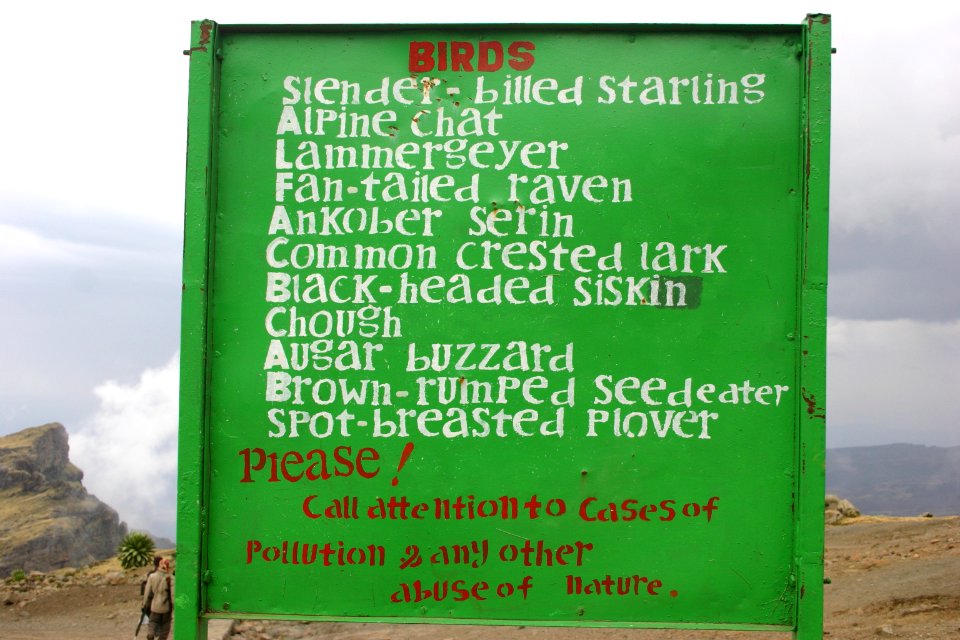 BIRDS
Slender-billed Starling
Alpine chat
Lammergeyer
Fan-tailed raven
Ankober Serin
Common crested lark
Black-headed siskin
Chough
Augar buzzard
Brown-rumped Seedeater
Spot-breasted Plover
Please!
Call attention to Cases of
Pollution & any other
abuse of nature.